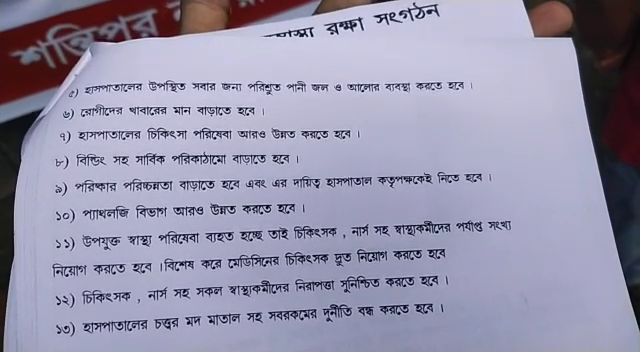 শান্তিপুর
রক্ষা সংগঠন
৫) হাসপাতালের উপস্থিত সবার জন্য পরিশ্রুত পানী জল ও আলোর ব্যবস্থা করতে হবে ।
৬) রোগীদের খাবারের মান বাড়াতে হবে ।
৭) হাসপাতালের চিকিৎসা পরিষেবা আরও উন্নত করতে হবে ।
৮) বিল্ডিং সহ সার্বিক পরিকাঠামো বাড়াতে হবে ।
৯) পরিষ্কার পরিচ্ছন্নতা বাড়াতে হবে এবং এর দায়িত্ব হাসপাতাল কতৃপক্ষকেই নিতে হবে ।
১০) প্যাথলজি বিভাগ আরও উন্নত করতে হবে ।
১১) উপযুক্ত স্বাস্থ্য পরিষেবা ব্যহত হচ্ছে তাই চিকিৎসক , নার্স সহ স্বাস্থ্যকর্মীদের পর্যাপ্ত সংখ্যা
নিয়োগ করতে হবে । বিশেষ করে মেডিসিনের চিকিৎসক দ্রুত নিয়োগ করতে হবে
১২) চিকিৎসক , নার্স সহ সকল স্বাস্থ্যকর্মীদের নিরাপত্তা সুনিশ্চিত করতে হবে ।
১৩) হাসপাতালের চত্ত্বর মদ মাতাল সহ সবরকমের দুর্নীতি বন্ধ করতে হবে ।